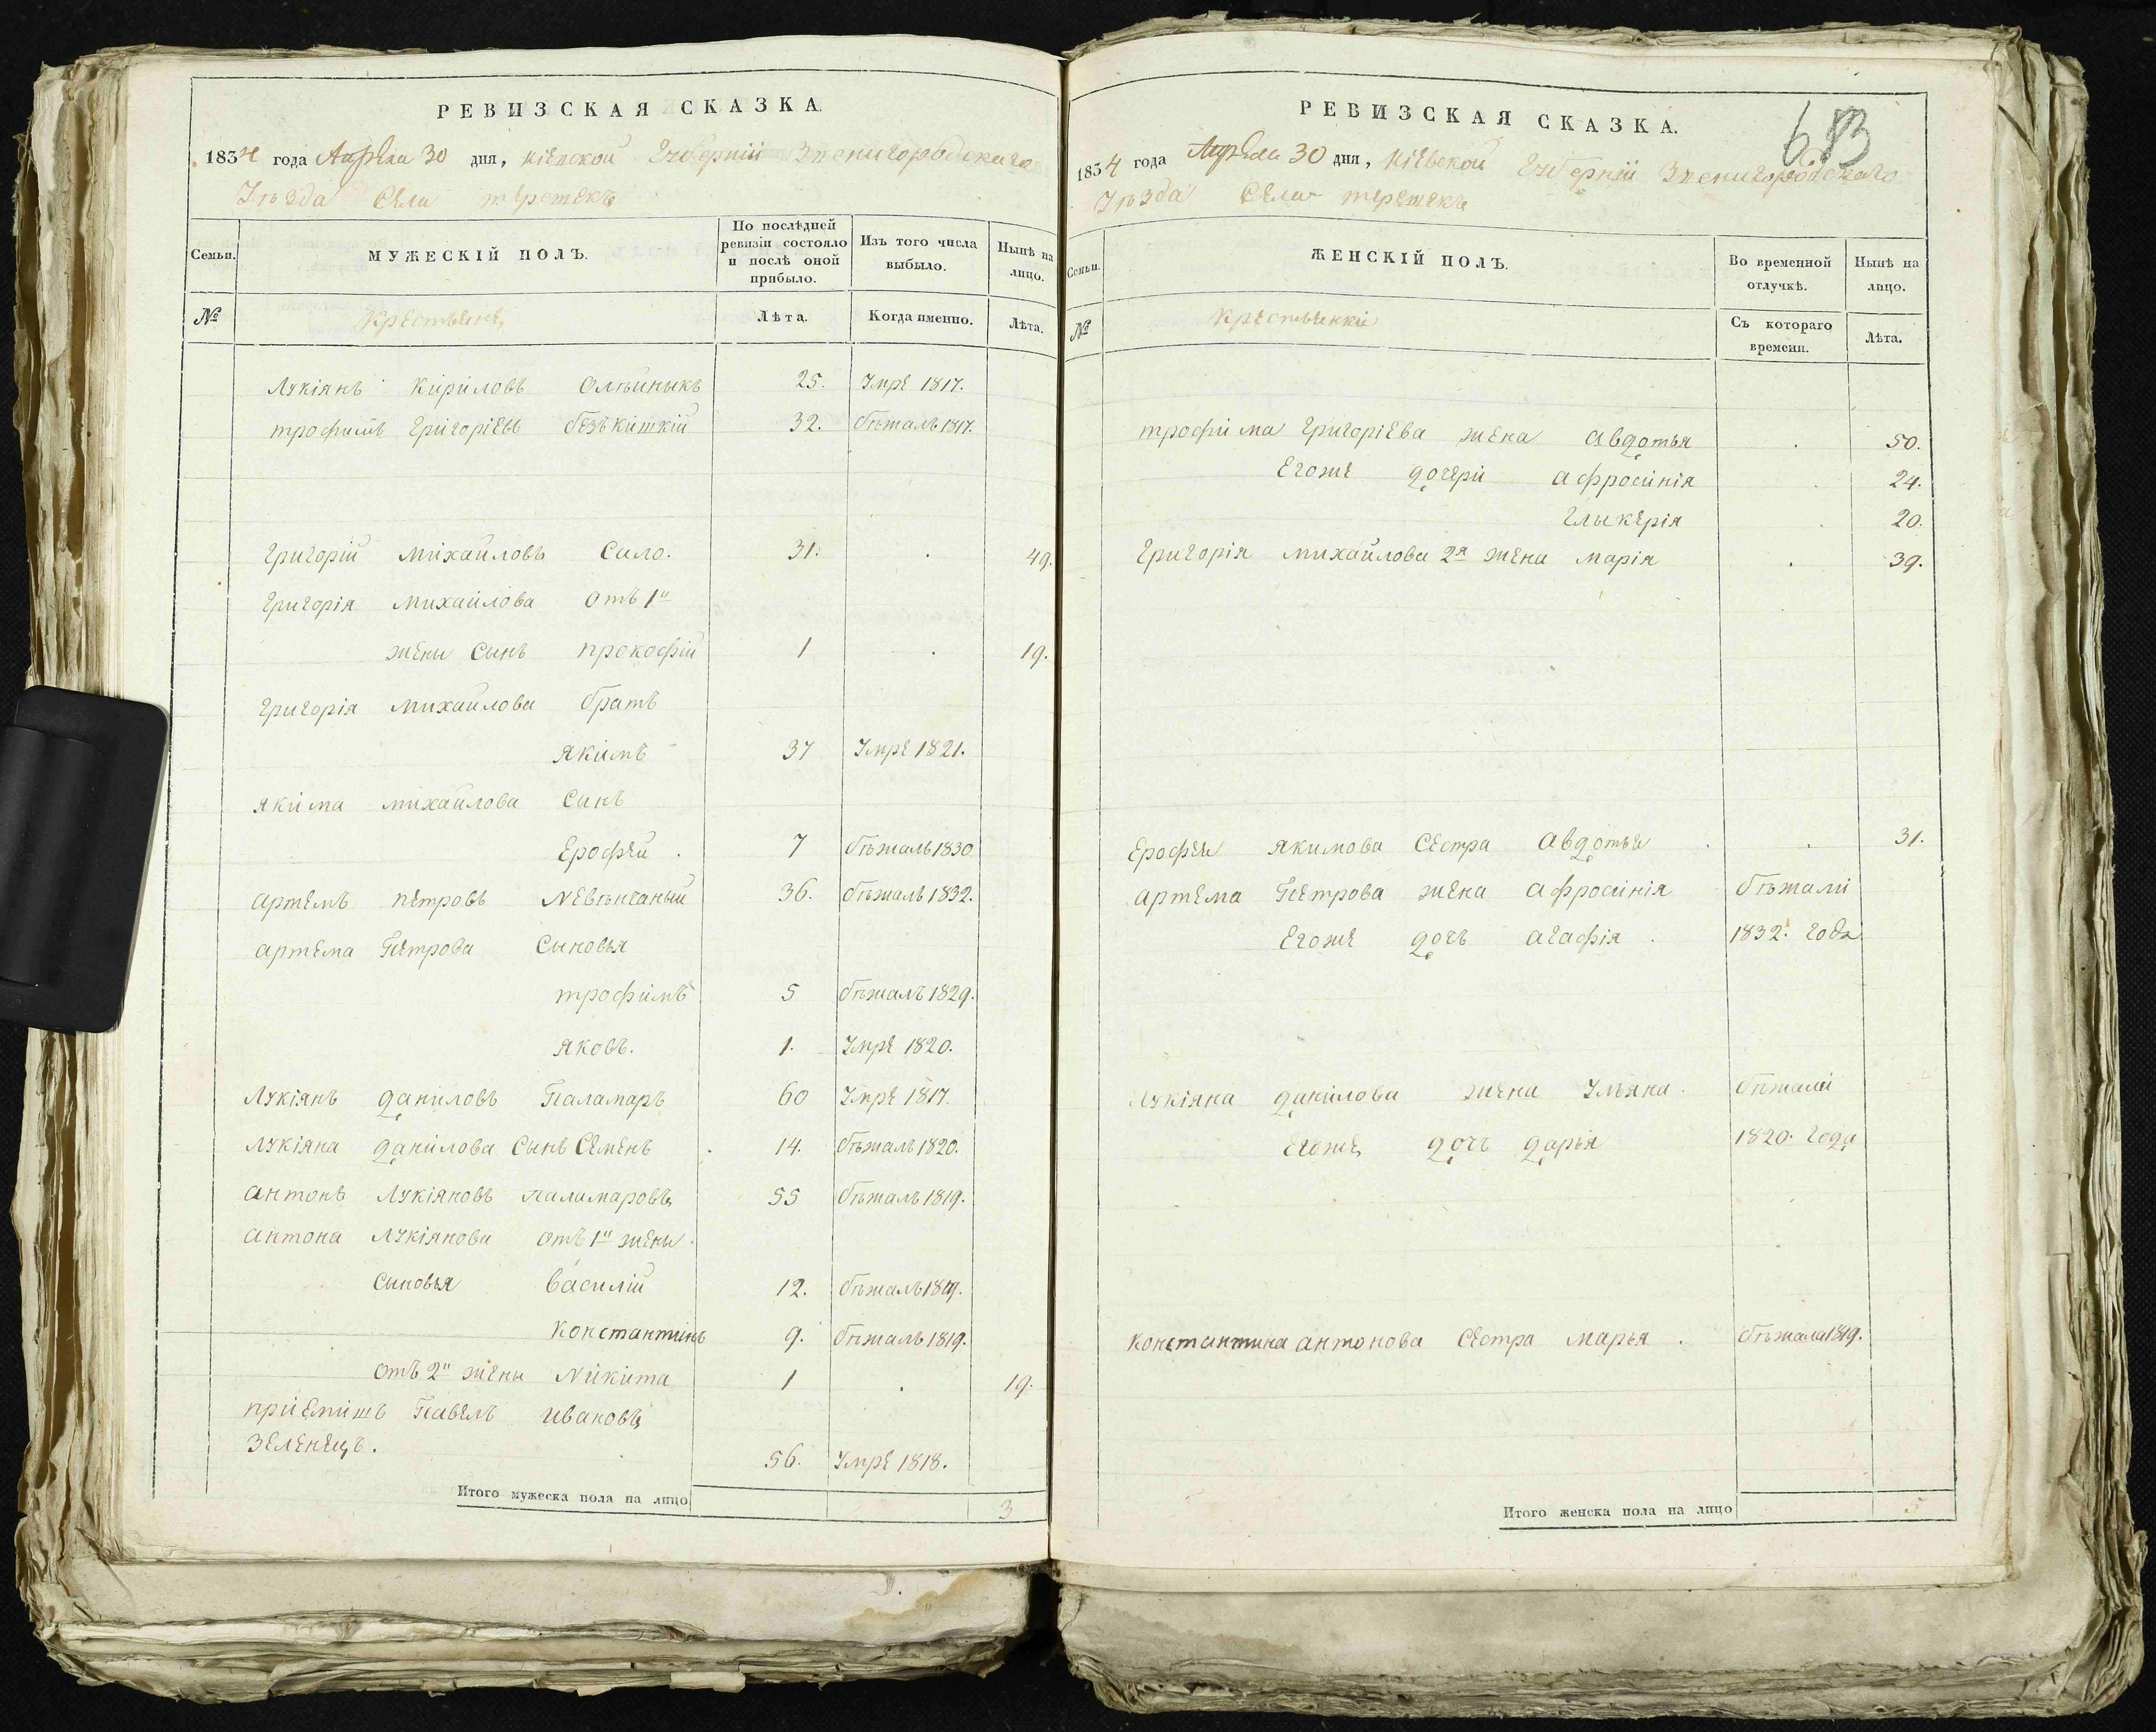 РЕВИЗСКАЯ СКАЗКА.
1834 года Апреля 30 дня, Кіевской Губерніи Звенигородскаго
Уѣзда Села
Семьи.
МУЖЕСКІЙ ПОЛЪ.
По послѣдней ревизіи состояло и послѣ оной прибыло.
Изъ того числа выбыло.
Нынѣ на лицо.
№
Крестьяне
Лѣта.
Когда именно.
Лѣта.
Лукіянъ Кириловъ Олѣиныкъ 25. Умре 1817.
трофимъ Григоріевъ безъкишкій 32. бѣжалъ 1817.
Григорій Михайловъ Сало. 31. . 49.
Григорія Михайлова отъ 1й
жены Сынъ прокофій 1 . 19.
Григорія Михайлова братъ
якимъ 37 Умре 1821.
якима михайлова Сынъ
Ерофей . 7 бѣжалъ 1830
артемъ петровъ Невѣнчаный 36. бѣжалъ 1832.
артема Петрова Сыновья
трофимъ 5 бѣжалъ 1829.
яковъ. 1. Умре 1820.
Лукіянъ даниловъ Паламаръ 60 Умре 1817.
Лукіяна данилова Сынъ Семенъ . 14. бѣжалъ 1820.
антонъ Лукіяновъ паламаровъ 55 бѣжалъ 1819.
антона Лукіянова отъ 1й жены.
Сыновья Василій 12. бѣжалъ 1819.
Константинъ 9. бѣжалъ 1819.
отъ 2й жены Никита 1 . 19.
приемишъ Павелъ ивановъ
Зеленецъ. 56. Умре 1818.
Итого мужеска пола на лицо 3
683
РЕВИЗСКАЯ СКАЗКА.
1834 года Апреля 30 дня, Кіевской Губерніи Звенигородскаго
Уѣзда Села
Семьи.
ЖЕНСКІЙ ПОЛЪ.
Во временной отлучкѣ.
Нынѣ на лицо.
№
Крестьянки
Съ котораго времени.
Лѣта.
трофима Григоріева жена авдотья . 50.
Егоже дочери афросинія . 24.
Глыкерія . 20.
Григорія михайлова 2я жена марія . 39.
Ерофея якимова Сестра авдотья . . 31.
артема Петрова жена афросинія бѣжали
Егоже дочь агафія . 1832. года
Лукіяна данилова жена Ульяна. бѣжали
Егоже дочь дарья 1820. года
Константина антонова Сестра марья . бѣжала 1819.
Итого женска пола на лицо 5